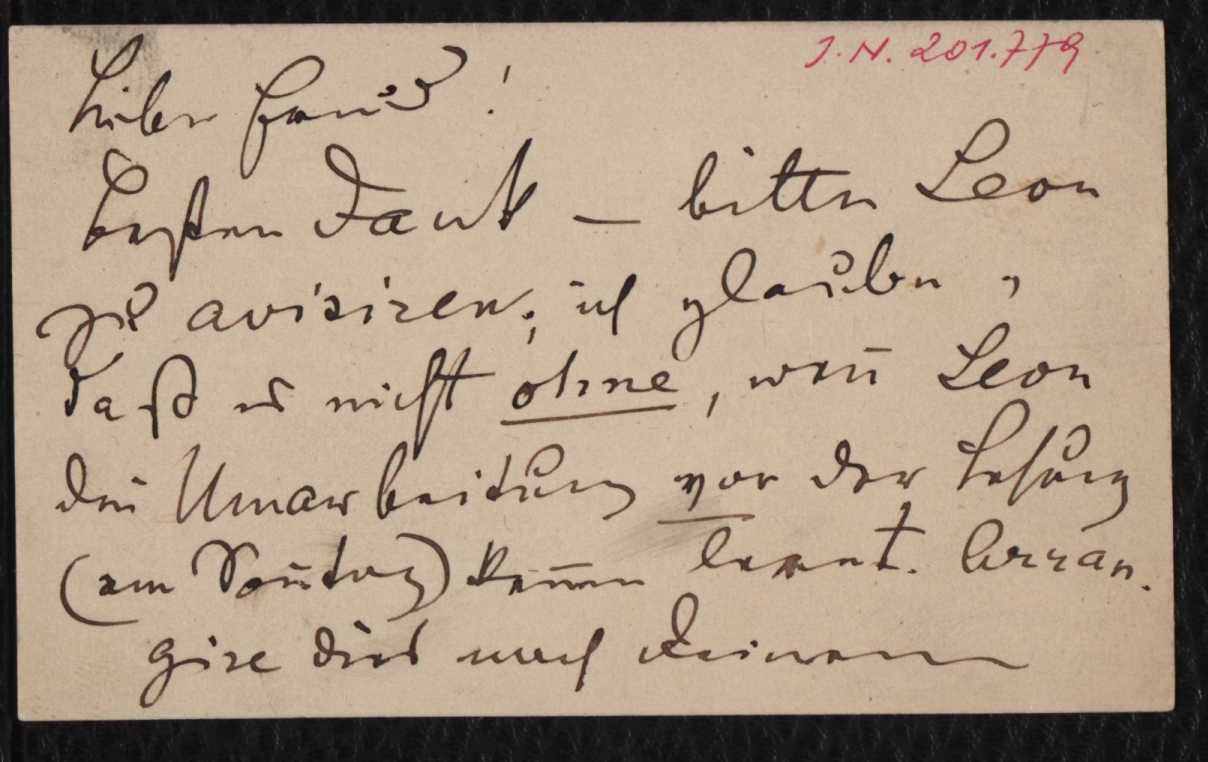 J. N. 201.779
Lieber Freund!
besten Dank – bitte Leon
zu avisiren; ich glaube,
daß es nicht ohne, weñ Leon
die Umarbeitung vor der Lesung
(am Soñtag) keñen lernt. Arran-
gire dies nach Deinem